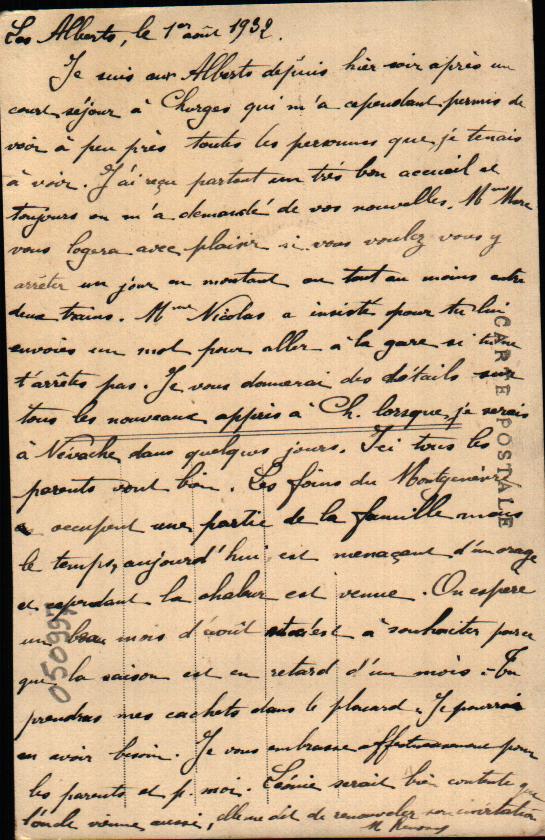 Les Alberts, le 1er août 1932.
Je suis aux Alberts depuis hier soir après un
court séjour à Chorges qui m'a cependant permis de
voir à peu près toutes les personnes que je tenais
à voir. J'ai reçu partout un très bon accueil et
toujours on m'a demandé de vos nouvelles. Mme
vous logera avec plaisir si vous voulez vous y
arrêter un jour en montant ou tout au moins entre
deux trains. Mme Nicolas a insisté pour tu lui
envoies un mot pour aller à la gare si tu ne
t'arrêtes pas. Je vous donnerai des détails sur
tous les nouveaux appris à Ch. lorsque je serais
à Névache dans quelques jours. Ici tous les
parents vont bien. Les foins du Montgenèvre
occupent une partie de la famille mais
le temps, aujourd'hui est menaçant d'un orage
et cependant la chaleur est venue. On espère
un beau mois d'août c'est à souhaiter parce
que la saison est en retard d'un mois. - Tu
prendras mes cachets dans le placard. Je pourrais
en avoir besoin. Je vous embrasse affectueusement pour
les parents et p. moi. Léonie serait bien contente que
l'oncle vienne aussi, elle me dit de renouveler son invitation
CARTE POSTALE
050997